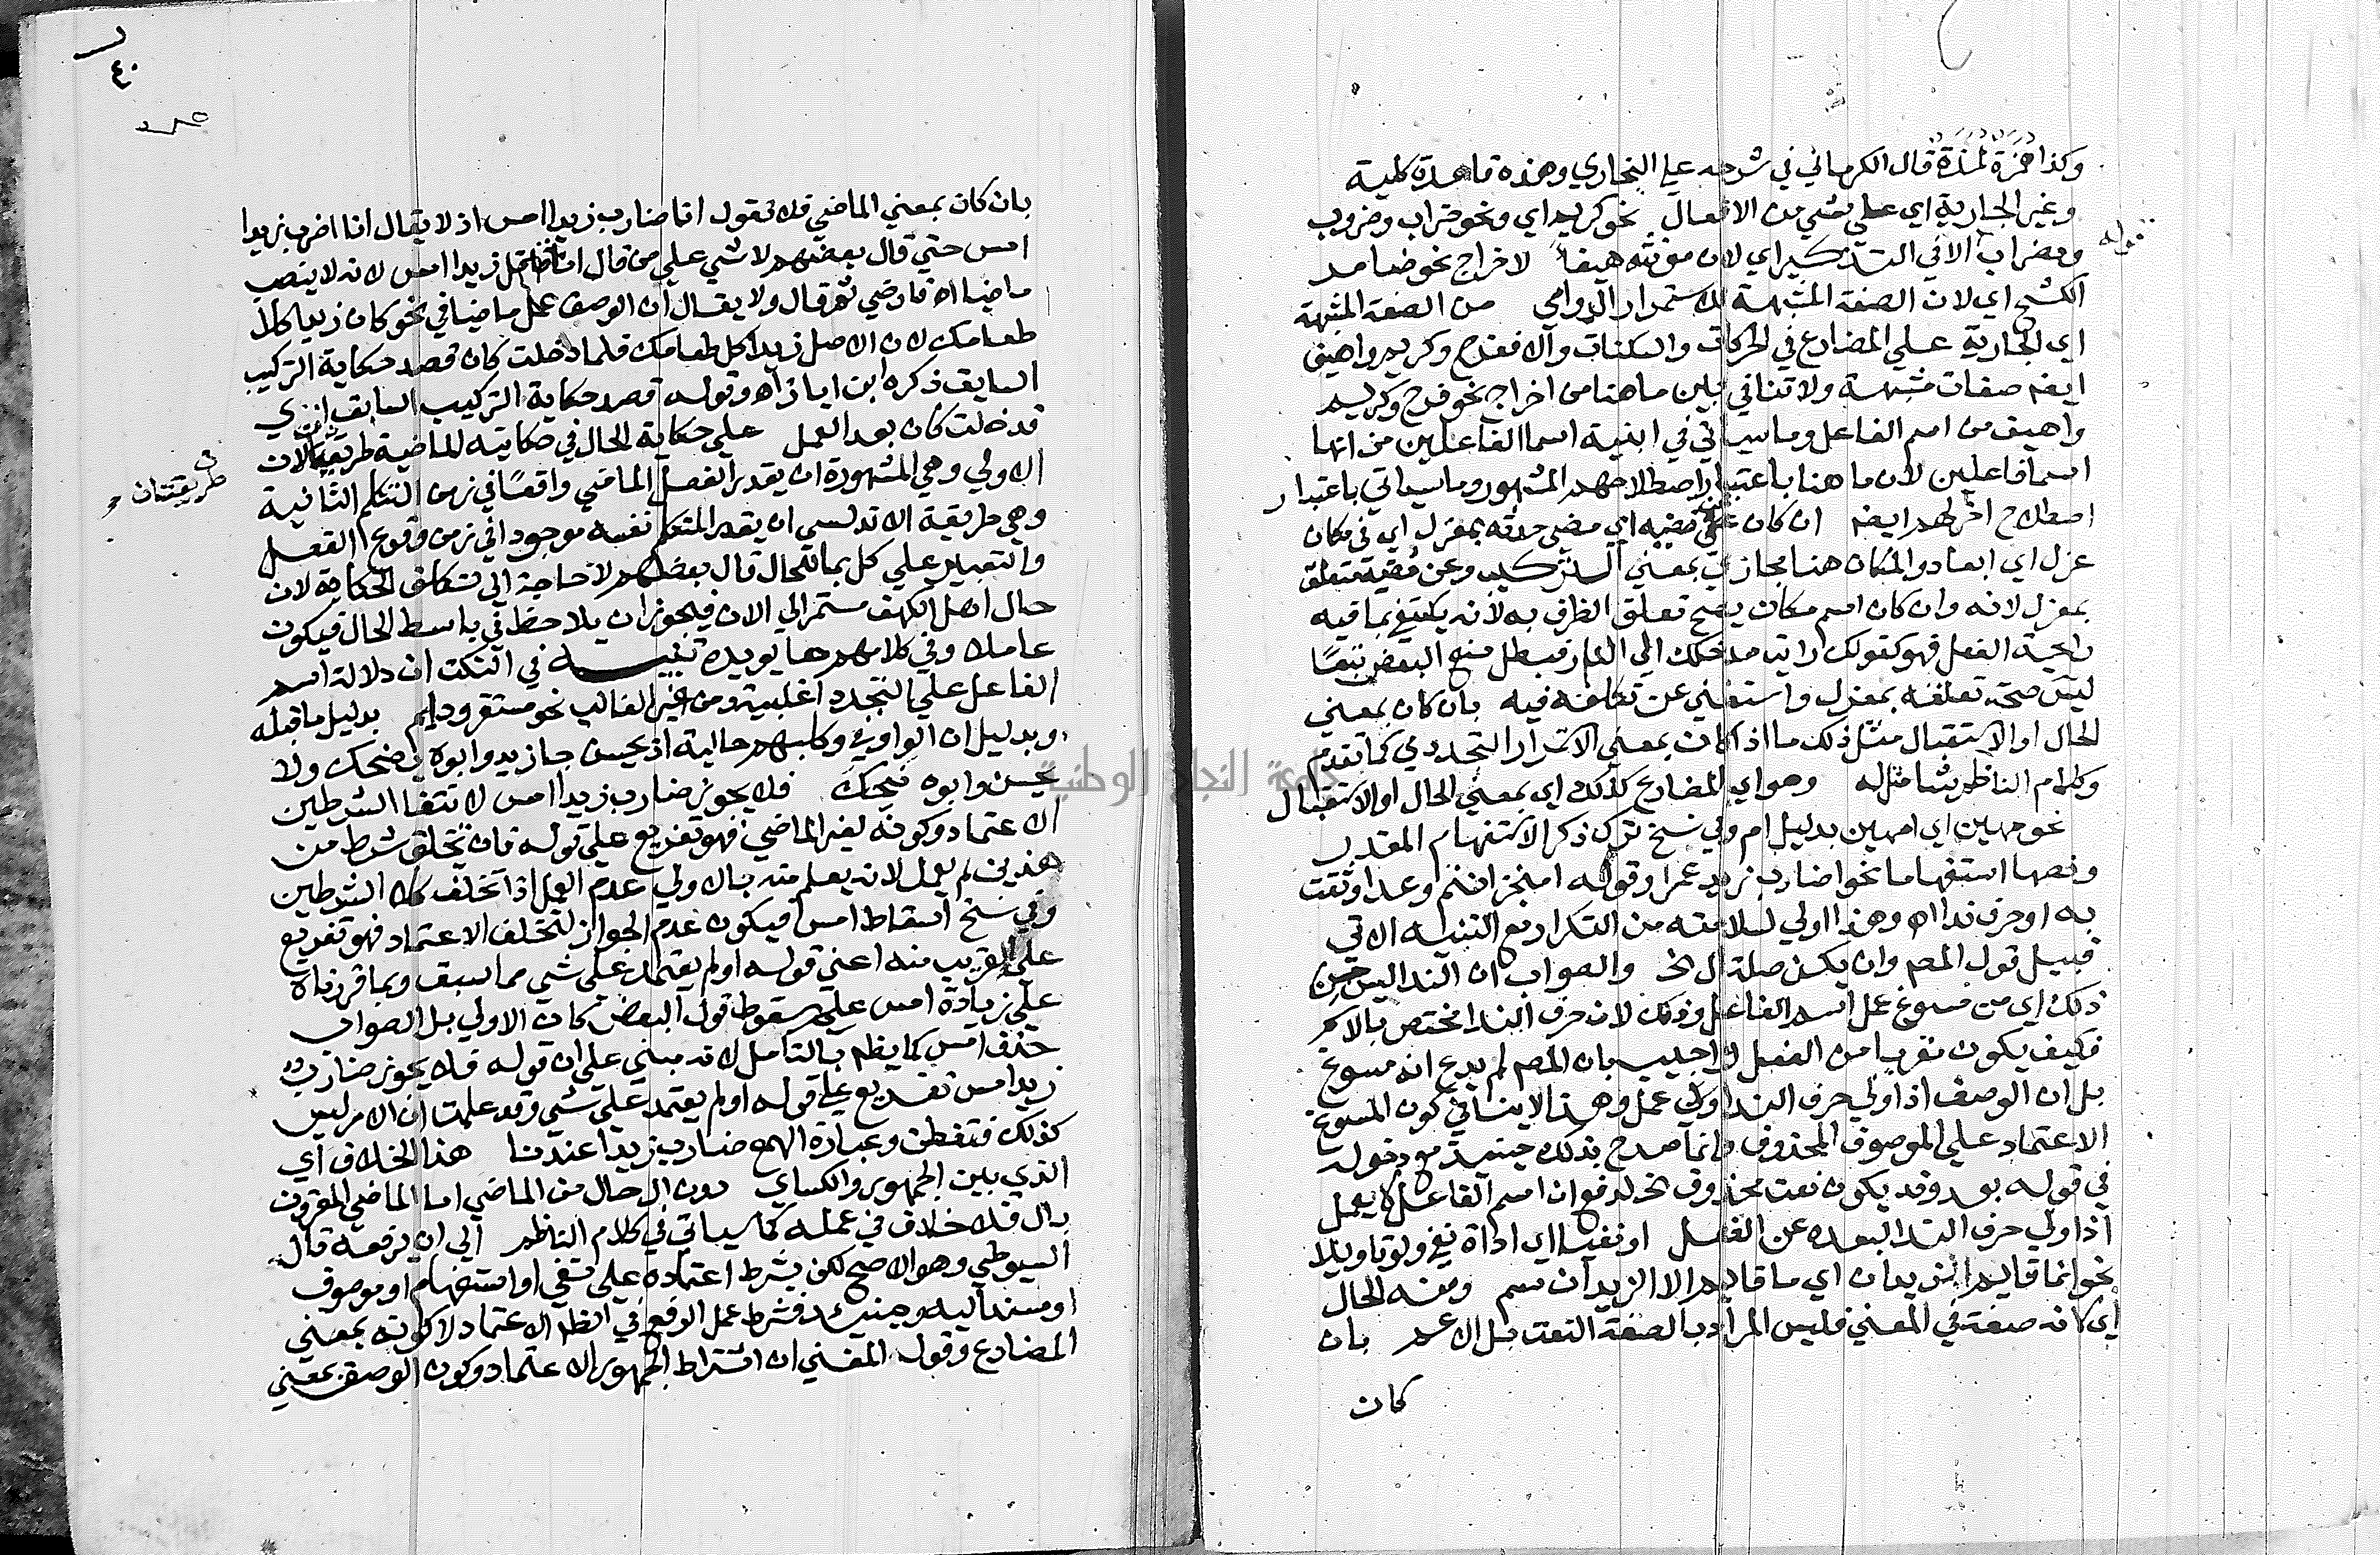 وكذا همزة لمزة قال الكرماني في شرحه علي البخاري وهذه قاعدة كلية
وغير الجارية اي علي شي من الافعال نحو كريم اي ونحو ضراب وضروب
قوله
ومضراب الا في التذكير اي لان مؤنثه هيفا لاخراج نحو ضامر
الكشح اي لان الصفة المشبهة للاستمرار الدوامي من الصفة المشبهة
اي الجارية علي المضارع في الحركات والسكنات والا ففرح وكريم واهيف
ايضا صفات مشبهة ولا تنافي بين ما هنا من اخراج نحو فرح وكريم
واهيف من اسم الفاعل وما سياتي في ابنية اسما الفاعلين من انها
اسما فاعلين لان ما هنا باعتبار اصطلاحهم المشهور وما سياتي باعتبار
اصطلاح اخر لهم ايضا ان كان عن مضيه اي مضي حدثه بمعزل اي في مكان
عزل اي ابعاد والمكان هنا مجازي بمعني التركيب وعن مضيه متعلق
بمعزل لانه وان كان اسم مكان يصح تعلق الظرف به لانه يكتفي بما فيه
رايحة الفعل فهو كقولك رايت مدخلك الي الدار فبطل منع البعض تبعا
ليس صحة تعلقه بمعزل واستغني عن تكلفه فيه بان كان بمعني
الحال او الاستقبال مثل ذلك ما اذا كان بمعني الاستمرار التجددي كما تقدم
وكلام الناظر يشامثله وهو اي المضارع كذلك اي بمعني الحال او الاستقبال
نحو مهين اي امهين بدليل ام وفي نسخ ترك ذكر الاستفهام المقدر
ونصها استفهاما نحو اضارب زيد عمرا وقوله امنجز انتم وعدا وثقت
به او حرف ندا اه وهذا اولي لسلامته من التكرار مع التنبيه الاتي
قبيل قول المصم وان يكن صلة ال الخ والصواب ان الندا ليس من
ذلك اي من مسوغ عمل اسم الفاعل وذلك لان حرف الندا مختص بالاسم
فكيف يكون مقربا من الفعل واجيب بان المصم لم يدع انه مسوغ
بل ان الوصف اذا ولي حرف الندا عمل وهذا لا ينافي كون المسوغ
الاعتماد علي الموصوف المحذوف وانما صرح بذلك حينيذ مع دخوله
في قوله بعد وقد يكون نعت محذوف الخ لدفع ان اسم الفاعل لا يعمل
اذا ولي حرف الندا لبعده عن الفعل او نفيا اي اداة نفي ولو تاويلا
نحو انما قايم الزيدان اي ما قايم الا الزيدان سم ومنه الحال
اي لانه صفة في المعني فليس المراد بالصفة النعت بل الاعم بان
كان
٤٠
بان كان بمعني الماضي فلا تقول انا ضارب زيدا امس اذ لا يقال انا اضرب زيدا
امس حتي قال بعضهم لا شي علي من قال انا قاتل زيدا امس لانه لا ينصب
ماضيا اه فارضي ثم قال ولا يقال ان الوصف عمل ماضيا في نحو كان زيد اكلا
طعامك لان الاصل زيد اكل طعامك فلما دخلت كان قصد حكاية التركيب
السابق ذكره ابن اياز اه وقوله قصد حكاية التركيب السابق اي الذي
قد دخلت كان بعد العمل علي حكاية الحال في حكايته الماضية طريقتان
طريقتان
الاولي وهي المشهورة ان يقدر الفعل الماضي واقعا في زمن التكلم الثانية
وهي طريقة الاندلسي ان يقدر المتكلم نفسه موجودا في زمن وقوع الفعل
والتعبير علي كل بما للحال قال بعضهم لا حاجة الي تكلف الحكاية لان
حال اهل الكهف مستمر الي الان فيجوز ان يلاحظ في باسط الحال فيكون
عاملا وفي كلامهم ما يويده تنبيه في النكت ان دلالة اسم
الفاعل علي التجدد اغلبية ومن غير الغالب نحو مستقر ودايم بدليل ما قبله
وبدليل ان الواو في وكلبهم حالية اذ يحسن جا زيد وابوه يضحك ولا
يحسن وابوه ضحك فلا يجوز ضارب زيدا امس لانتفا الشرطين
الاعتماد وكونه لغير الماضي فهو تفريع علي قوله فان تخلف شرط من
هذين لم يعمل لانه يعلم منه بالاولي عدم العمل اذا تخلف كلا الشرطين
وفي نسخ اسقاط امس فيكون عدم الجواز لتخلف الاعتماد فهو تفريع
علي القريب منه اعني قوله او لم يعتمد علي شي مما سبق وبما قررناه
علي زيادة امس علم سقوط قول البعض كان الاولي بل الصواب
حذف امس كما يظهر بالتامل لانه مبني علي ان قوله فلا يجوز ضارب
زيدا امس تفريع علي قوله او لم يعتمد علي شي وقد علمت ان الامر ليس
كذلك فتفطن وعبارة الهمع ضارب زيدا عندنا هذا الخلاف اي
الذي بين الجمهور والكساي دون ال حال من الماضي اما الماضي المقرون
بال فلا خلاف في عمله كما سياتي في كلام الناظم الي ان يرفعه قال
السيوطي وهو الاصح لكن بشرط اعتماده علي نفي او استفهام او موصوف
او مسند اليه وحينيذ فشرط عمل الرفع في الظاهر الاعتماد لا كونه بمعني
المضارع وقول المغني ان اشتراط الجمهور الاعتماد وكون الوصف بمعني
جامعة النجاح الوطنية